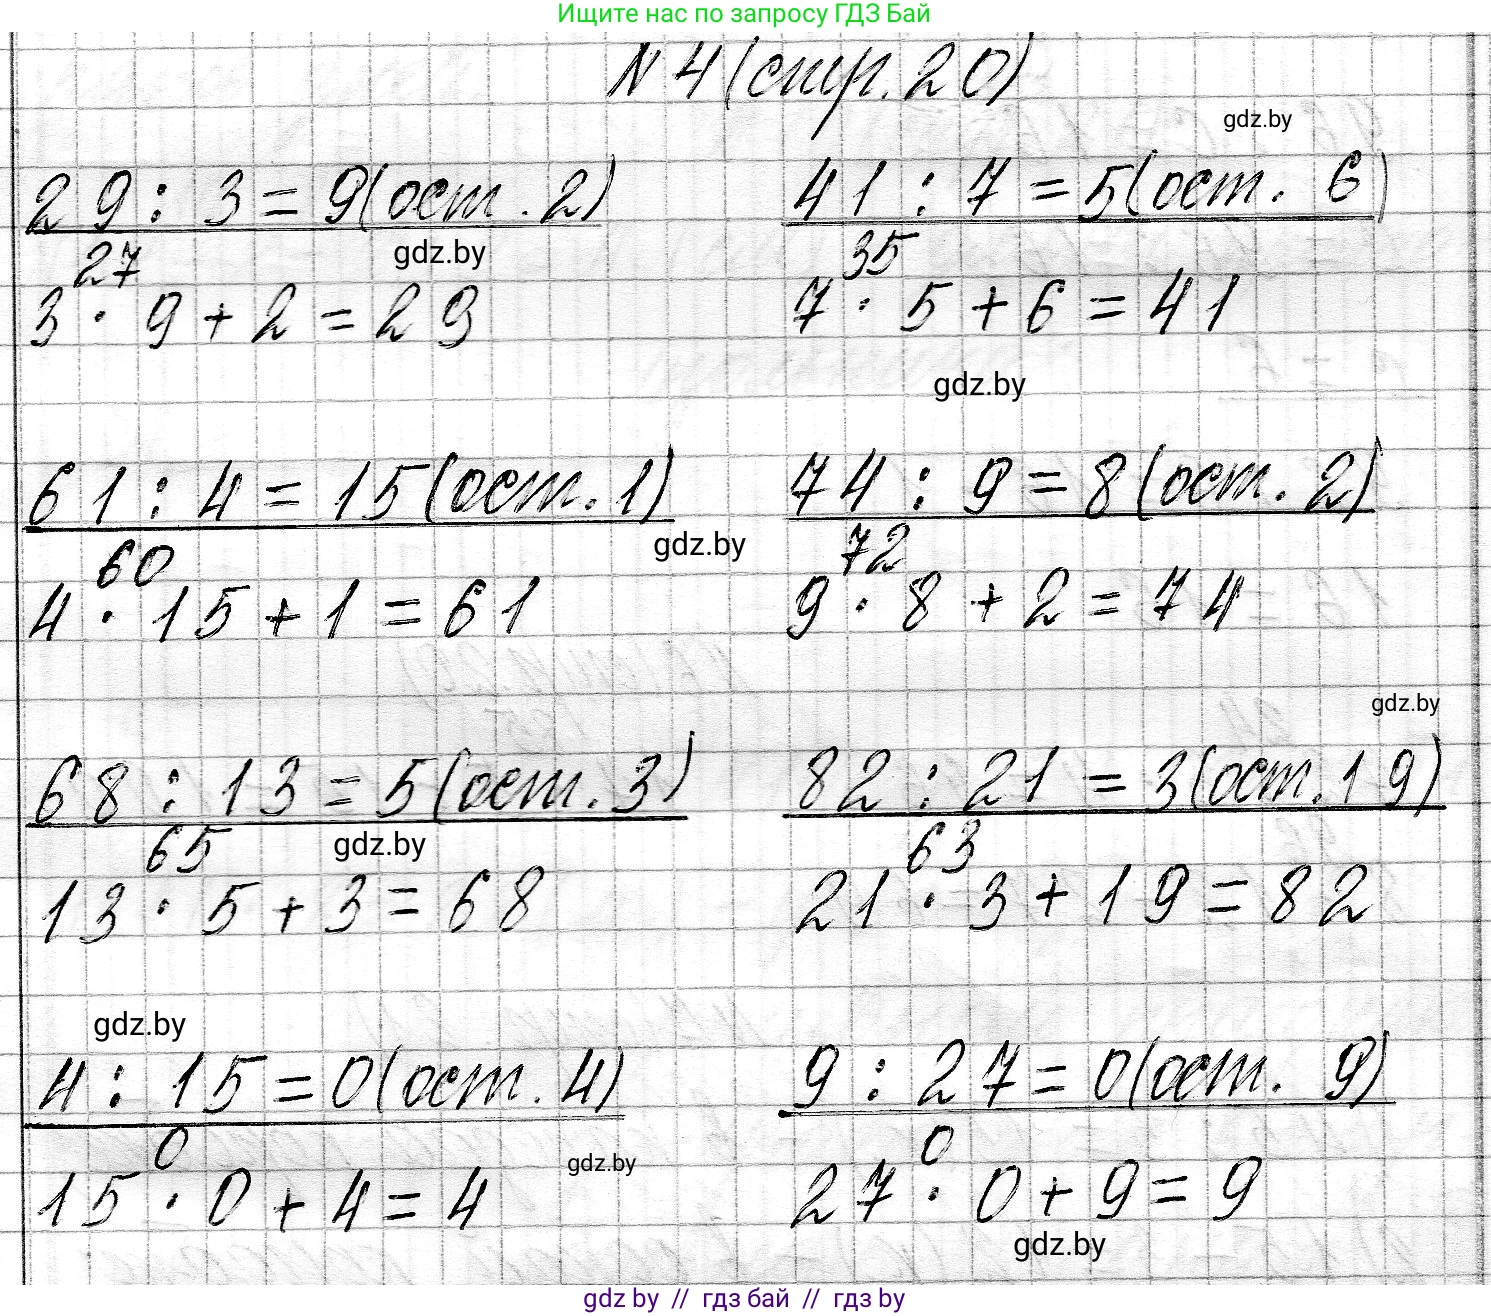 Ищите нас по запросу ГДЗ Бай
N 4 (стр. 20)
gdz.by
29 : 3 = 9 (ост. 2)
41 : 7 = 5 (ост. 6)
27
gdz.by
35
3 · 9 + 2 = 29
7 · 5 + 6 = 41
gdz.by
61 : 4 = 15 (ост. 1)
74 : 9 = 8 (ост. 2)
60
gdz.by
72
4 · 15 + 1 = 61
9 · 8 + 2 = 74
gdz.by
68 : 13 = 5 (ост. 3)
82 : 21 = 3 (ост. 19)
65
gdz.by
63
13 · 5 + 3 = 68
21 · 3 + 19 = 82
gdz.by
4 : 15 = 0 (ост. 4)
9 : 27 = 0 (ост. 9)
0
gdz.by
0
15 · 0 + 4 = 4
27 · 0 + 9 = 9
gdz.by
gdz by // гдз бай // гдз by